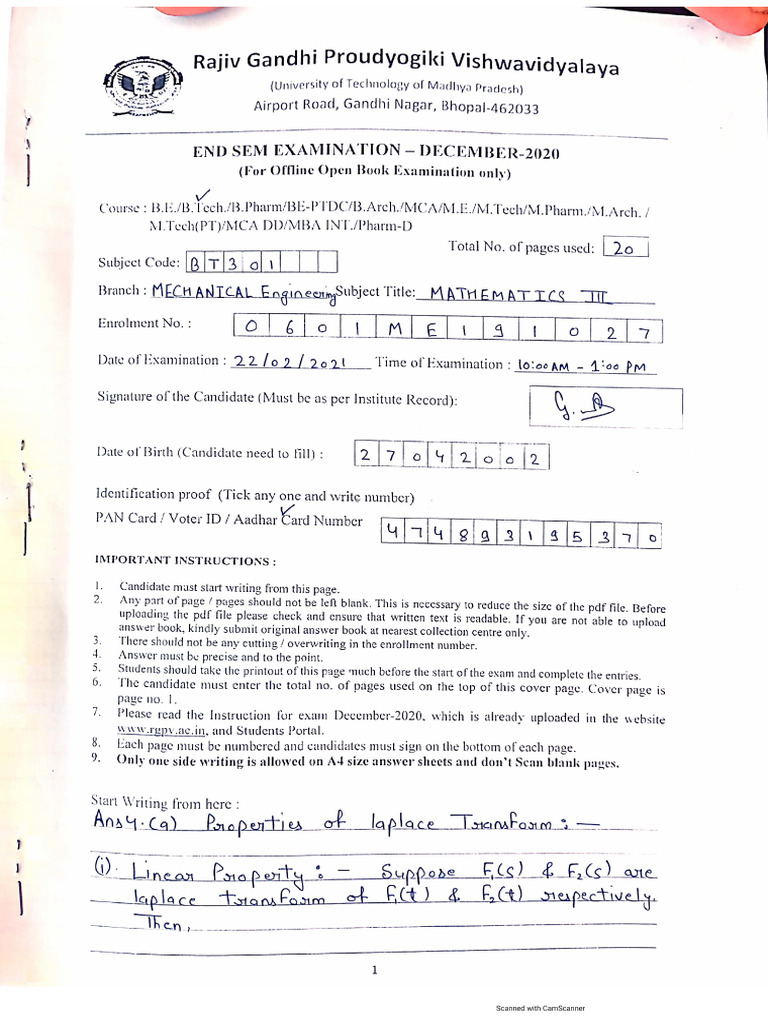 Rajiv Gandhi Proudyogiki Vishwavidyalaya
(University of Technology of Madhya Pradesh)
Airport Road, Gandhi Nagar, Bhopal-462033
END SEM EXAMINATION – DECEMBER-2020
(For Offline Open Book Examination only)
Course : B.E./B.Tech./B.Pharm/BE-PTDC/B.Arch./MCA/M.E./M.Tech/M.Pharm./M.Arch. /
M.Tech(PT)/MCA DD/MBA INT./Pharm-D
Total No. of pages used: 20
Subject Code: BT301
Branch : MECHANICAL Engineering Subject Title: MATHEMATICS III
Enrolment No. : 0601ME191027
Date of Examination : 22/02/2021 Time of Examination : 10:00 AM - 1:00 PM
Signature of the Candidate (Must be as per Institute Record):
Date of Birth (Candidate need to fill) : 27042002
Identification proof (Tick any one and write number)
PAN Card / Voter ID / Aadhar Card Number 474893195370
IMPORTANT INSTRUCTIONS :
1. Candidate must start writing from this page.
2. Any part of page / pages should not be left blank. This is necessary to reduce the size of the pdf file. Before
uploading the pdf file please check and ensure that written text is readable. If you are not able to upload
answer book, kindly submit original answer book at nearest collection centre only.
3. There should not be any cutting / overwriting in the enrollment number.
4. Answer must be precise and to the point.
5. Students should take the printout of this page much before the start of the exam and complete the entries.
6. The candidate must enter the total no. of pages used on the top of this cover page. Cover page is
page no. 1.
7. Please read the Instruction for exam December-2020, which is already uploaded in the website
www.rgpv.ac.in, and Students Portal.
8. Each page must be numbered and candidates must sign on the bottom of each page.
9. Only one side writing is allowed on A4 size answer sheets and don't Scan blank pages.
Start Writing from here :
Ans4.(a) Properties of laplace Transform: —
(i). Linear Property : - Suppose F₁(s) & F₂(s) are
laplace transform of F₁(t) & F₂(t) respectively.
Then,
1
Scanned with CamScanner